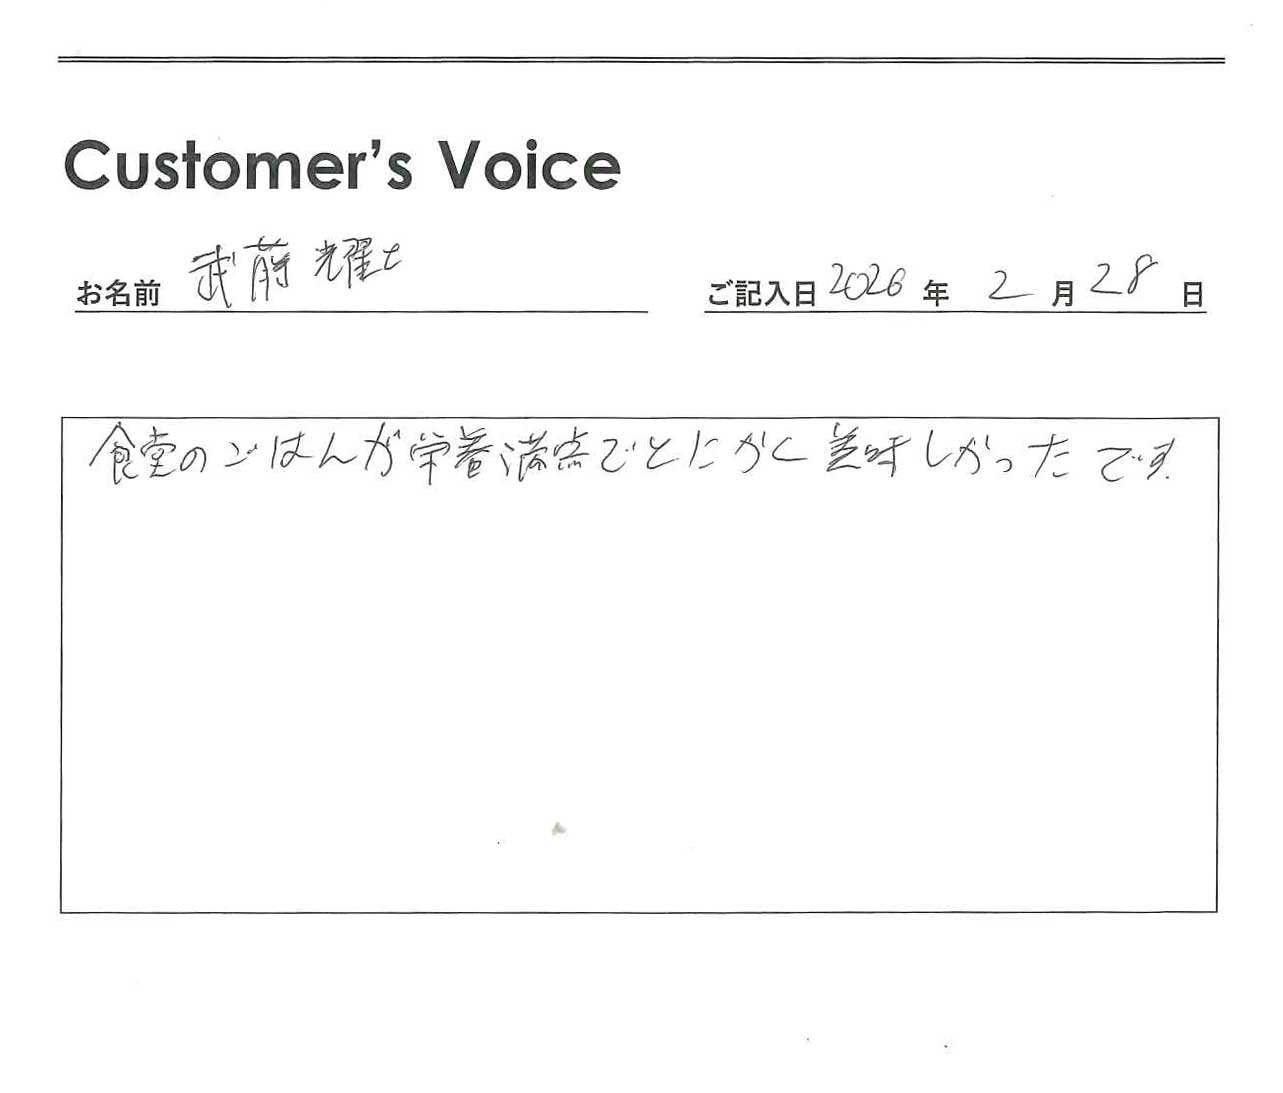 Customer's Voice
お名前 武藤 耀士
ご記入日 2026 年 2 月 28 日
食堂のごはんが栄養満点でとにかく美味しかったです